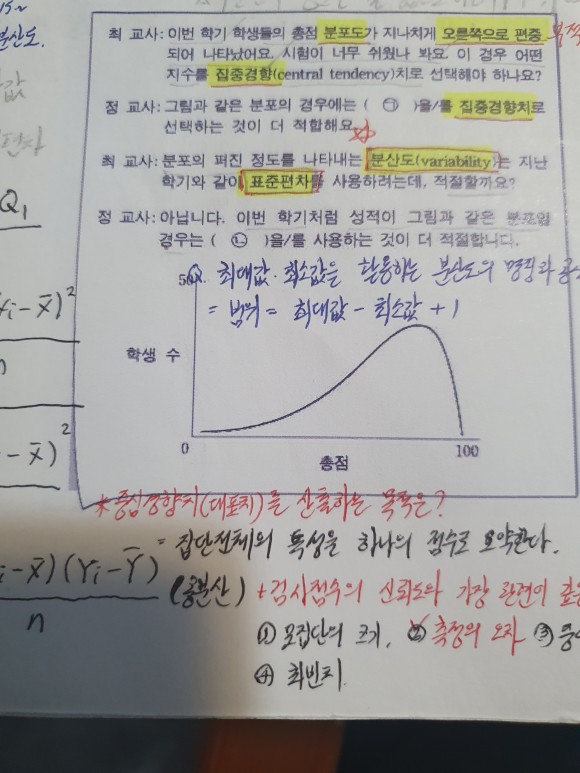 분산도.
최 교사: 이번 학기 학생들의 총점 분포도가 지나치게 오른쪽으로 편중
되어 나타났어요. 시험이 너무 쉬웠나 봐요. 이 경우 어떤
지수를 집중경향(central tendency)치로 선택해야 하나요?
정 교사: 그림과 같은 분포의 경우에는 ( ㉠ )을/를 집중경향치로
선택하는 것이 더 적합해요.
최 교사: 분포의 퍼진 정도를 나타내는 분산도(variability)는 지난
학기와 같이 표준편차를 사용하려는데, 적절할까요?
Q₁
정 교사: 아닙니다. 이번 학기처럼 성적이 그림과 같은 분포일
경우는 ( ㉡ )을/를 사용하는 것이 더 적절합니다.
50
Q. 최대값·최소값을 활용하는 분산도의 명칭과
= 범위 = 최대값 - 최소값 + 1
- x̄)²
n
학생 수
- x̄)²
0
100
총점
* 중심경향치(대표치)를 산출하는 목적은?
= 집단전체의 특성을 하나의 점수로 요약한다.
- x̄)(Yi - Ȳ)
n
(공분산)
+ 검사점수의 신뢰도와 가장 관련이
① 모집단의 크기. ② 측정의 오차 ③
④ 최빈치.